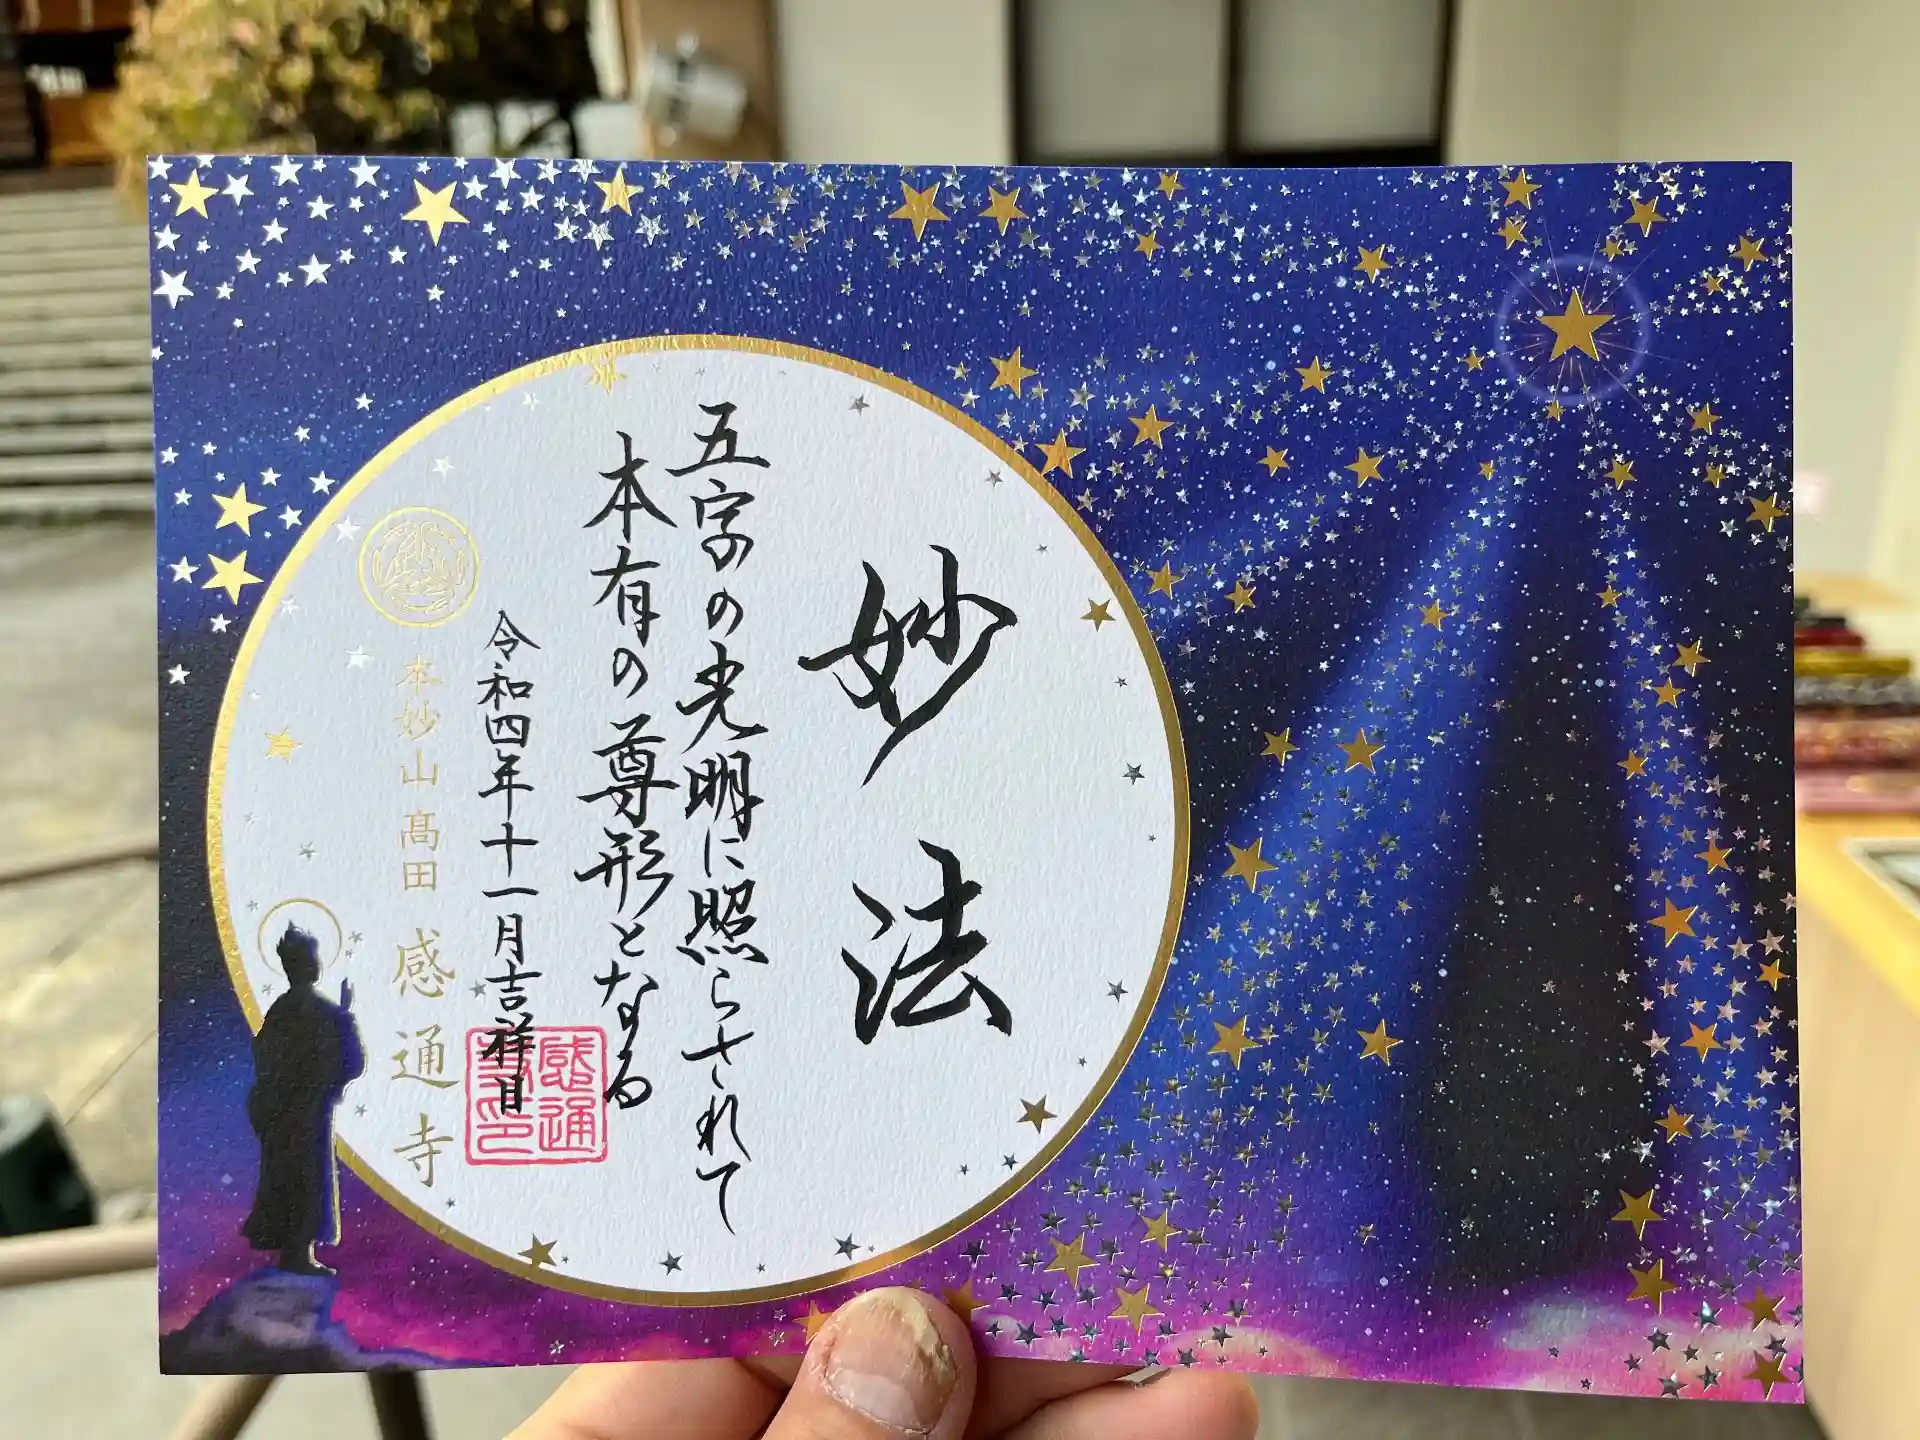 妙法
五字の光明に照らされて
本有の尊形となる
令和四年十一月吉祥日
本妙山髙田感通寺
感通
寺印